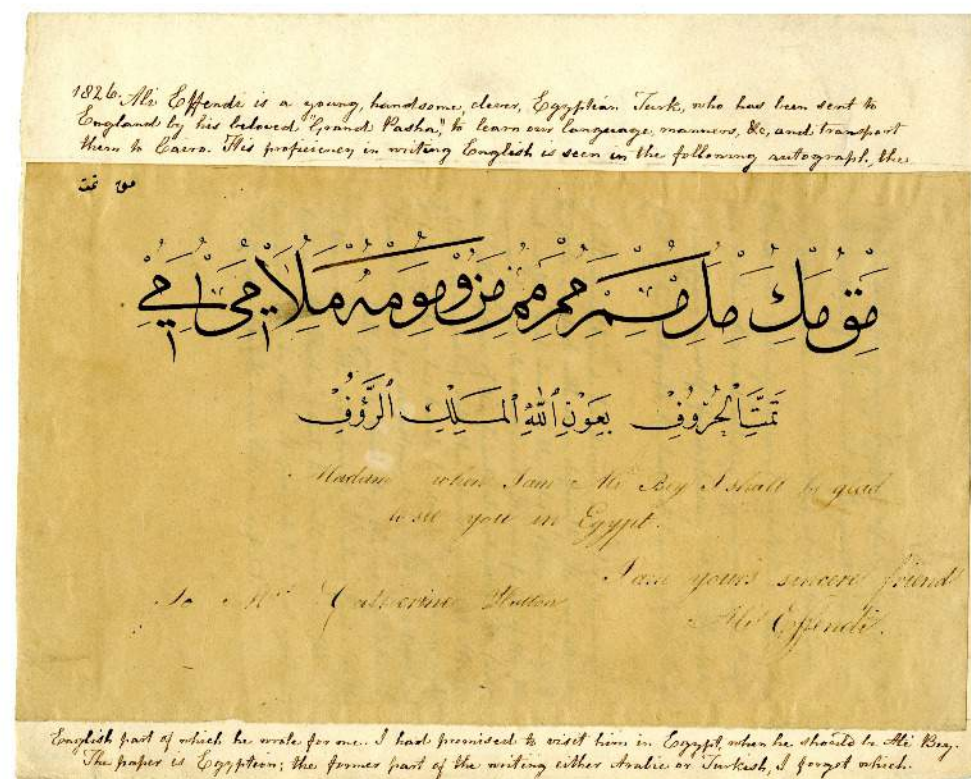 1826. Ali Effendi is a young, handsome, clever, Egyptian Turk, who has been sent to
England by his beloved "Grand Pasha", to learn our language, manners, &c, and transport
them to Cairo. His proficiency in writing English is seen in the following autograph, the
مَقِ مَكِ مَلِ مَمِ مَرِمَمِ مَزِ وَمَوِ مَهِ مَلَا مَىِ مَىِ
تَمَّتِ الْحُرُوفُ بِعَوْنِ اللهِ الْمَلِكِ الرَّؤُفِ
Madam when I am Ali Bey I shall be glad
to see you in Egypt.
I am your's sincere friend
To Mrs Catherine Hutton
Ali Effendi.
English part of which he wrote for me. I had promised to visit him in Egypt, when he should be Ali Bey.
The paper is Egyptian; the former part of the writing either Arabic or Turkish, I forget which.